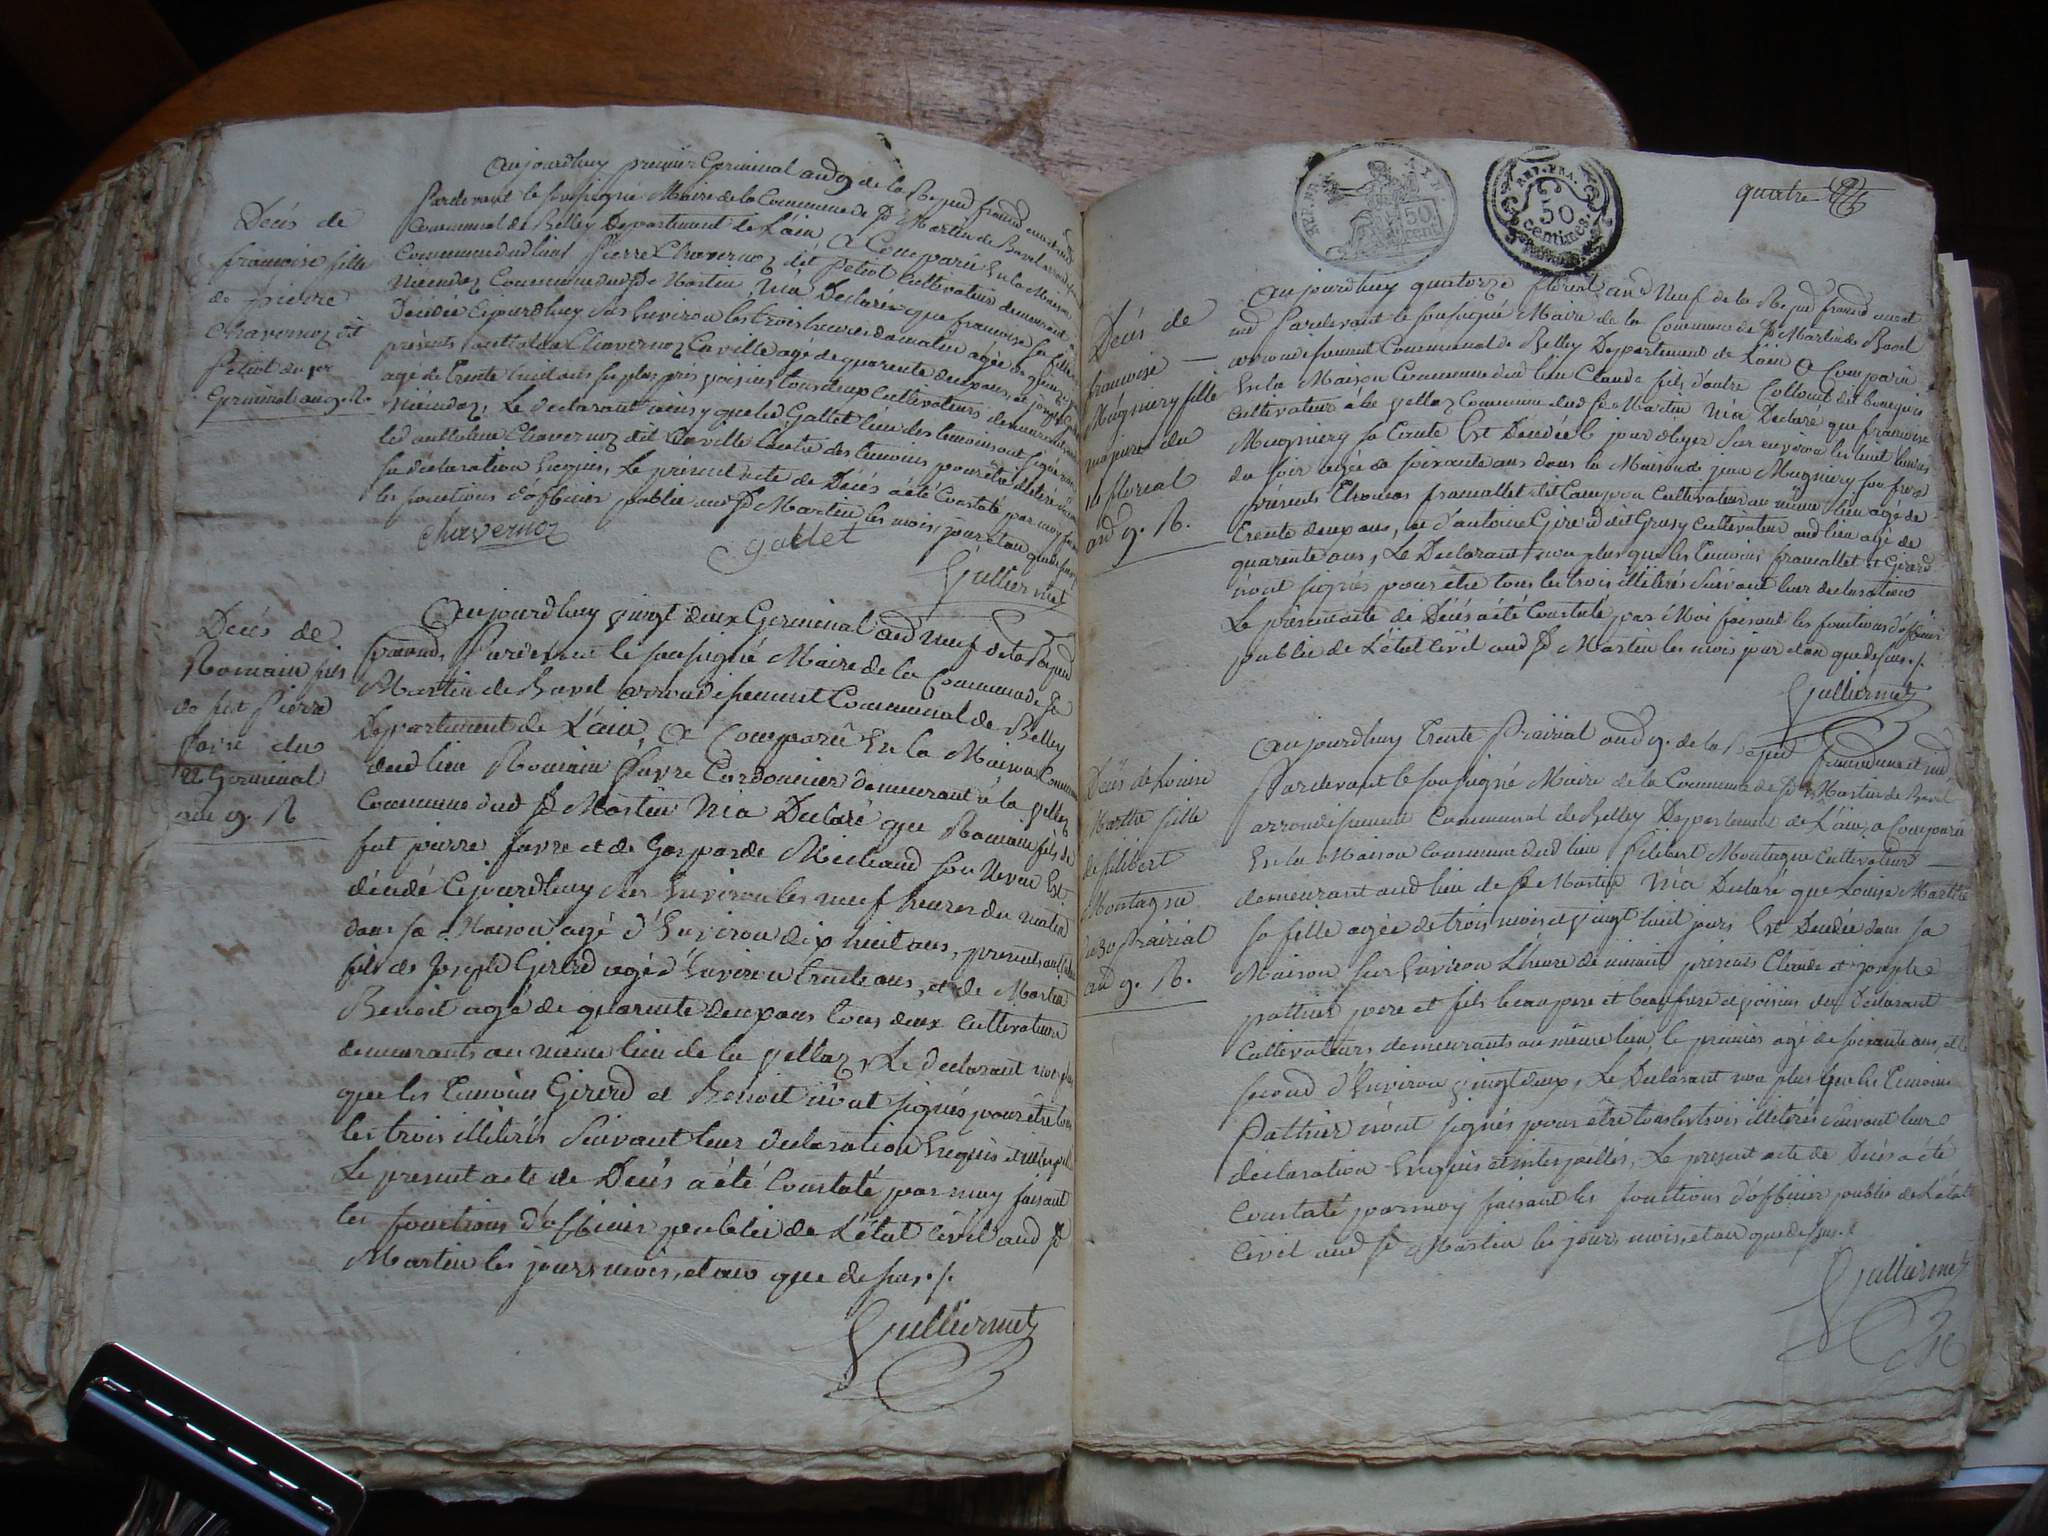 Décès de
francoise fille
de pierre
Chavernoz dit
Petiot du 1er
Germinal an 9. R.
Aujourdhuy premier Germinal and 9 de la Repud francd une et ind
Pardevant le soussigné Maire de la Commune de St Martin de Bavel
Communal de Belley Département de L'ain, a Comparu En la Maison
Commune dud lieu Pierre Chavernoz dit Petiot Cultivateur demeurant a
Commune dud St Martin M'a Declaré que francoise sa fille
Décédée Cejourdhuy sur Environ les trois heures du matin agée de
présents anttoline Chavernoz Laville agé de quarente deux ans, et joseph
agé de Trente huit ans ses plus près voisins tous deux Cultivateurs demeurants
Le declarant ainsy que led Gallet l'un des temoins ont signé
led anttoline Chavernoz dit Laville l'autre des temoins pour être illiteré
sa declaration Enquis, Le présent acte de Décès a été Constaté par moy
les fonctions d'officier public aud St Martin les mois, jour et an que dessus
Chavernoz
gallet
Gulliermet
Décès de
Romain fils
de fut Pierre
favre du
22 Germinal
and 9. R
Aujourdhuy vingt deux Germinal and neuf de la Repud
francd, Pardevant le soussigné Maire de la Commune de St
Martin de Bavel arrondissement Communal de Belley
Departement de L'ain, a Comparu En la Maison Commune
dud lieu Romain favre Cordonnier demeurant à la vellaz
Commune dud St Martin M'a Declaré que Romain fils de
fut pierre favre et de Gasparde Michaud son Neveu Est
décédé Cejourdhuy sur Environ les neuf heures du matin
dans sa Maison agé d'Environ dix huit ans, presents
fils de Joseph Girerd agé d'Environ trente ans, et de Martin
Benoit agé de quarente deux ans tous deux cultivateurs
demeurants au même lieu de la vellaz, Le declarant non plus
que les Temoins Girerd et Benoit n'ont signés pour être tous
les trois illiterés Suivant leur declaration Enquis et interpellés
Le present acte de Décès a été Constaté par moy faisant
les fonctions d'officier public de L'état Civil aud St
Martin les jours mois, et ans que dessus ./.
Gulliermet
REP. FRA.
50
cent.
REP. FRA.
50
centimes
quatre
Décès de
francoise
Mugniery fille
majeure du
14 floreal
and 9. R.
Aujourdhuy quatorze floréal and Neuf de la Repud francd une et
ind Pardevant le soussigné Maire de la Commune de St Martin de Bavel
arrondissement Communal de Belley Département de L'ain a Comparu
En la Maison Commune dud lieu Claude fils d'autre Collomb dit
Cultivateur a la vellaz Commune dud St Martin M'a Declaré que francoise
Mugniery sa Tante Est Décédée le jour d'hyer sur environ les huit heures
du soir agée de soixante ans dans la Maison de jean Mugniery son frere
présents Thomas framallet dit Cultivateur au même lieu agé de
trente deux ans, et d'antoine Girerd dit Grusy Cultivateur aud lieu agé de
quarente ans, Le Declarant non plus que les Temoins framallet et Girerd
n'ont signés pour être tous les trois illiterés Suivant leur declaration
Le present acte de Décès a été Constaté par Moi faisant les fonctions d'officier
public de L'état Civil aud St Martin les mois jour et an que dessus ./.
Gulliermet
Décès de Louise
Marthe fille
de filibert
Montagne
du 30 Prairial
and 9. R.
Aujourdhuy Trente Prairial and 9. de la Repud francd une et ind,
Pardevant le soussigné Maire de la Commune de St Martin de Bavel
arrondissement Communal de Belley Departement de L'ain, a Comparu
En la Maison Commune dud lieu filibert Montagne Cultivateur
demeurant aud lieu de St Martin M'a Declaré que Louise Marthe
sa fille agée de trois mois et vingt huit jours Est Décédée dans sa
Maison sur Environ L'heure de minuit présents Claude et joseph
pathier pere et fils beau pere et beau frere et voisins du Declarant
Cultivateurs demeurants au même lieu le premier agé de soixante ans, et le
second d'Environ vingt deux, Le Declarant non plus que les Temoins
Pathier n'ont signés pour être tous les trois illiterés suivant leur
déclaration Enquis et interpellés, Le present acte de Décès a été
Constaté par moy faisant les fonctions d'officier public de L'état
Civil aud St Martin les jours mois, et an que dessus ./.
Gulliermet